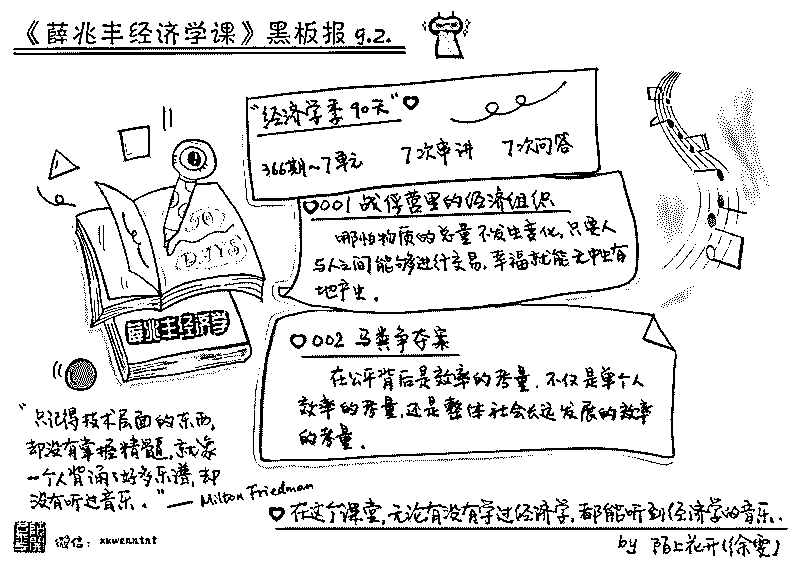 《薛兆丰经济学课》黑板报 9.2.
"经济学季 90天"
366期~7单元 7次串讲 7次问答
001 战俘营里的经济组织
哪怕物质的总量不发生变化,只要人
与人之间能够进行交易,幸福就能无中生有
地产生.
90
DAYS
薛兆丰经济学
002 马粪争夺案
在公平背后是效率的考量.不仅是单个人
效率的考量,还是整体社会长远发展的效率
的考量.
"只记得技术层面的东西,
却没有掌握精髓,就像
一个人背诵了好多乐谱,却
没有听过音乐."——Milton Friedman
在这个课堂,无论有没有学过经济学,都能听到经济学的音乐.
微信:
by 陌上花开(徐雯)